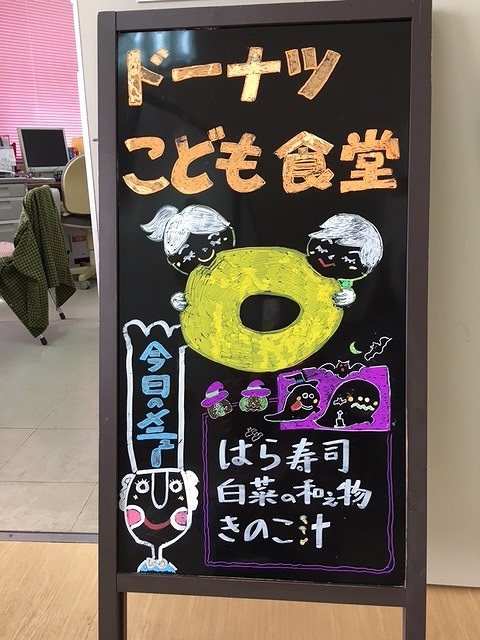 ドーナツ
こども食堂
今日のメニュー
ばら寿司
白菜の和え物
きのこ汁